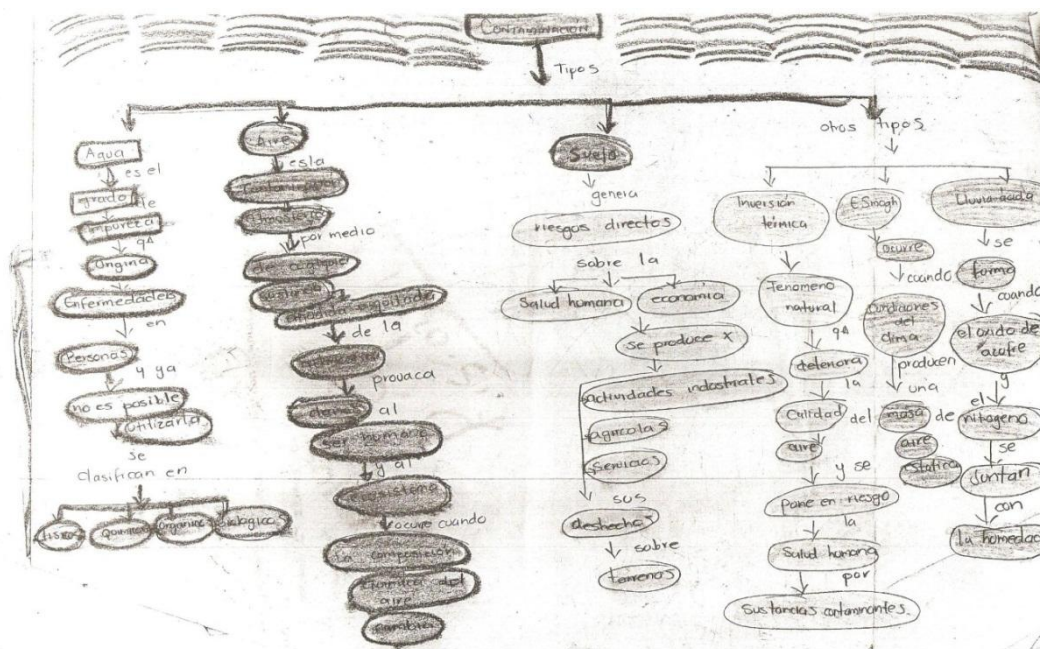 CONTAMINACIÓN
Tipos
Agua
es el
grado
de
impureza
qº
Origina
Enfermedades
en
Personas
y ya
no es posible
utilizarla
se
clasifican en
físicos
Químico
orgánico
biológico
Aire
es la
por medio
de cualquier
sustancia
añadida
de la
provoca
al
ser humano
y al
ecosistema
ocurre cuando
la composición
química del
aire
cambia
Suelo
genera
riesgos directos
sobre la
Salud humana
economía
se produce x
actividades industriales
agrícolas
servicios
sus
deshechos
sobre
terrenos
otros tipos
Inversión
térmica
Fenómeno
natural
qº
deteriora
la
Calidad
del
aire
y se
pone en riesgo
la
Salud humana
por
Sustancias contaminantes
ocurre
cuando
Condiciones
del
clima
producen
una
masa de
aire
estática
Lluvia ácida
se
forma
cuando
el oxido de
azufre
y
el
nitrogeno
se
Juntan
con
la humedad